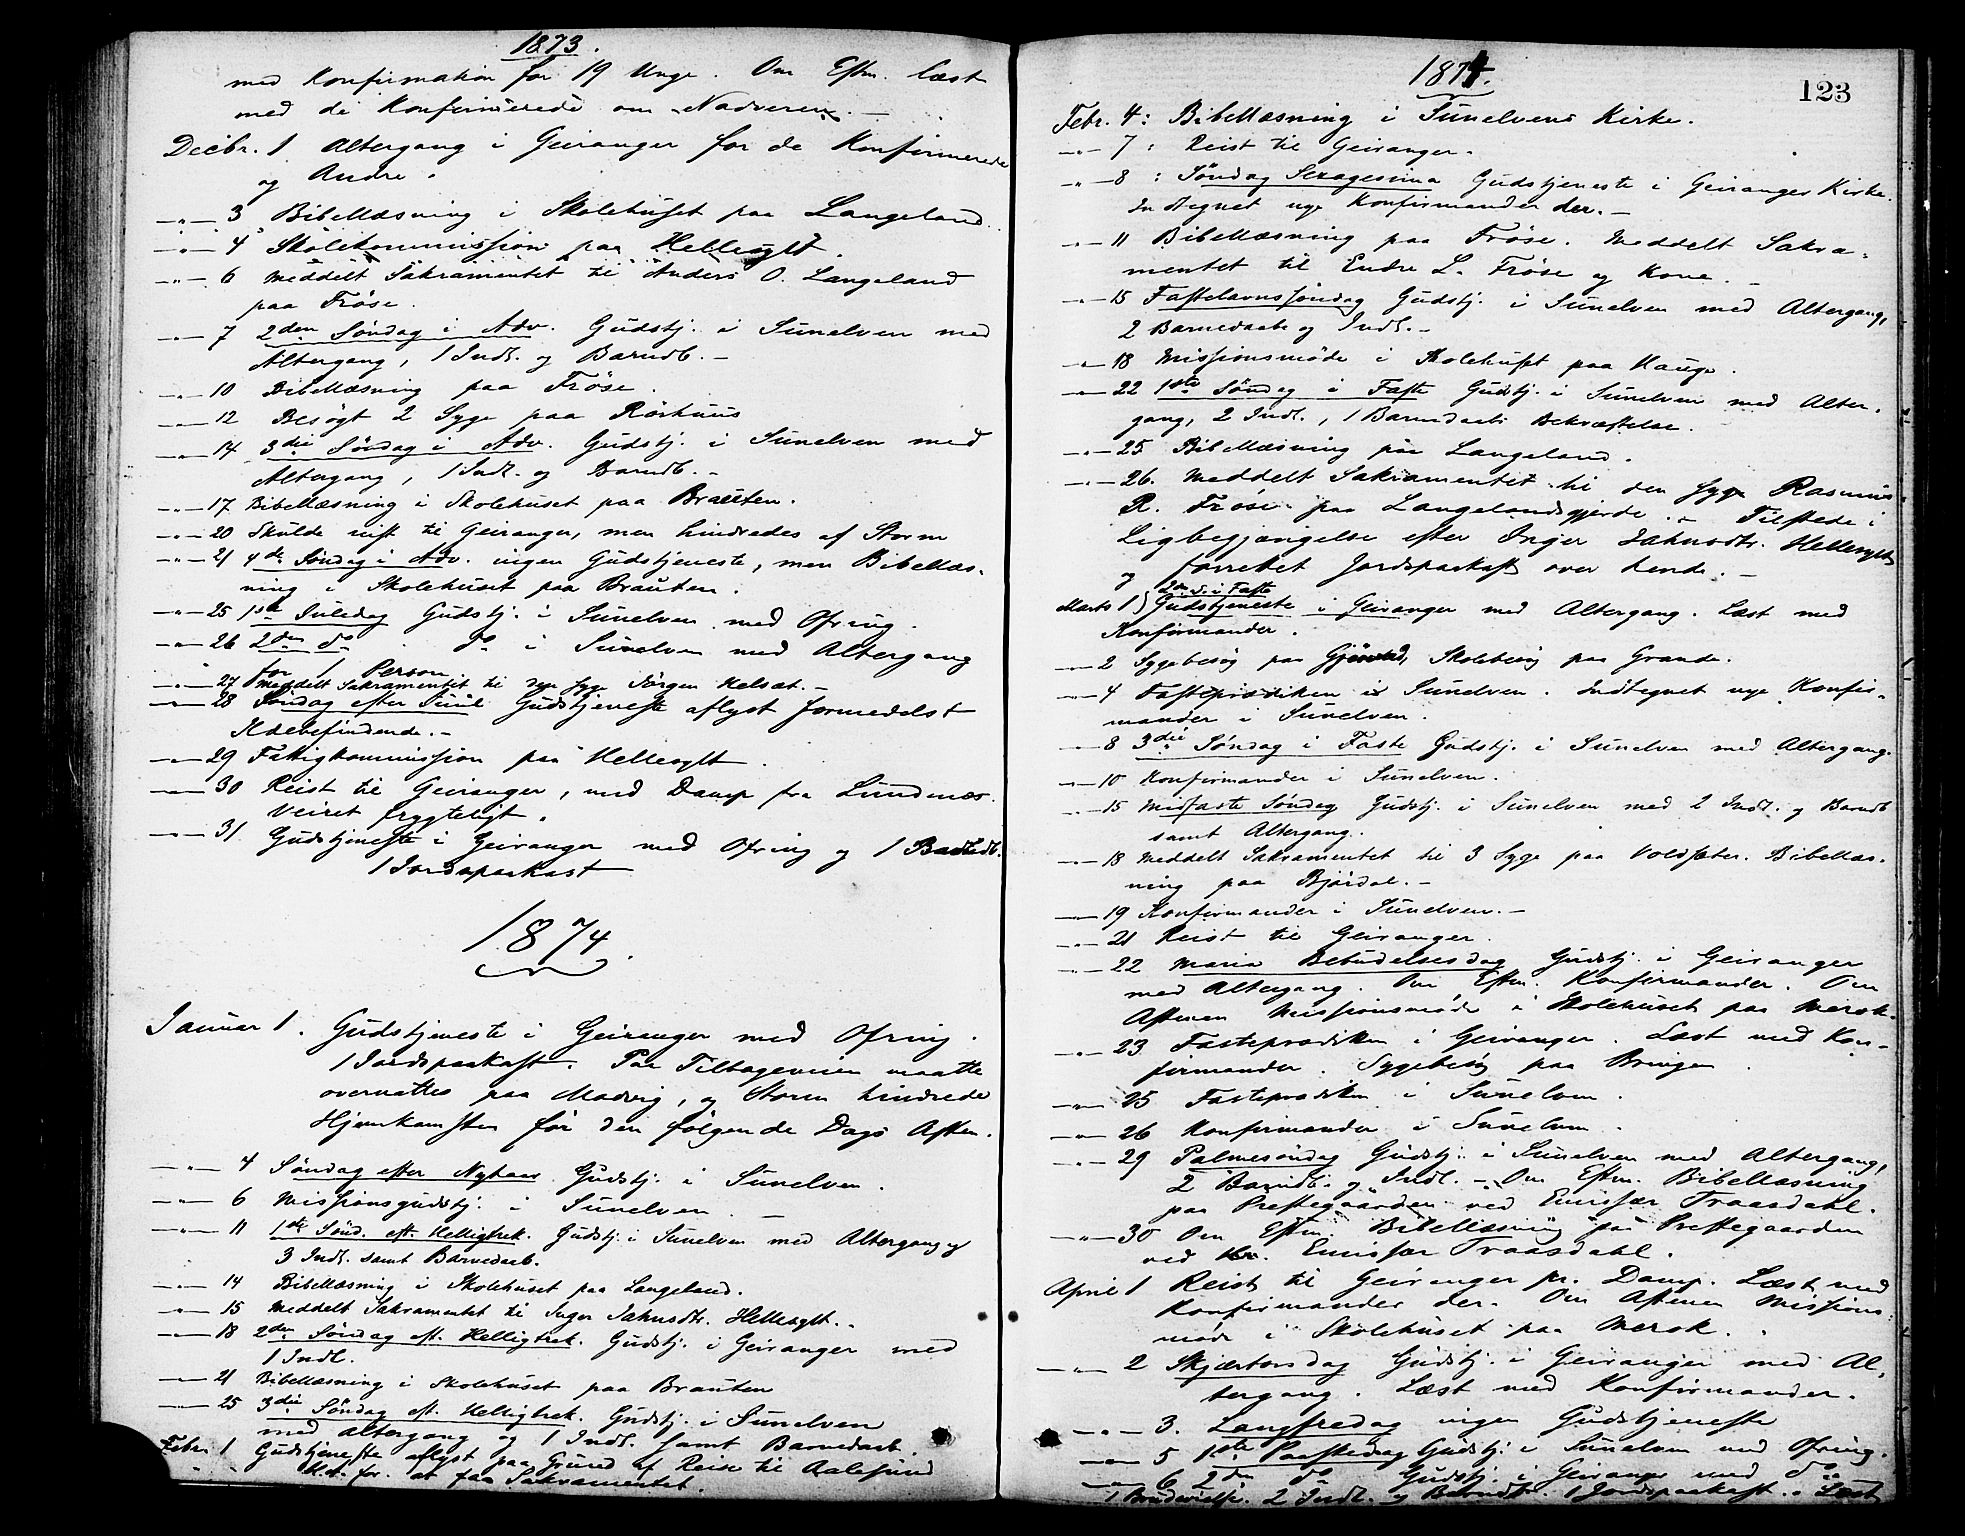 1873.
med Konfirmation for 19 Unge. Om Eftm. læst
med de Konfirmerede om Nadveren. —
Decbr. 1 Altergang i Geiranger for de Konfirmerede
og Andre.
—"— 3 Bibellæsning i Skolehuset paa Langeland.
—"— 4 Skolekommission paa Hellesylt.
—"— 6 Meddelt Sakramentet til Anders O. Langeland
paa Frøse.
—"— 7 2den Søndag i Adv. Gudstj. i Sunelven med
Altergang, 1 Indl. og Barndb. —
—"— 10 Bibellæsning paa Frøse.
—"— 12 Besøgt 2 Syge paa Rørhuus
—"— 14 3die Søndag i Adv. Gudstj. i Sunelven med
Altergang, 1 Indl. og Barndb. —
—"— 17 Bibellæsning i Skolehuset paa Brauten.
—"— 20 Skulde reist til Geiranger, men hindredes af Storm
—"— 21 4de Søndag i Adv. ingen Gudstjeneste, men Bibellæs-
ning i Skolehuset paa Brauten.
—"— 25 1ste Juledag Gudstj. i Sunelven med Ofring.
—"— 26 2den do do i Sunelven med Altergang
for 1 Person
—"— 27 Meddelt Sakramentet til syge Jørgen Kelsæt. —
—"— 28 Søndag efter Juul Gudstjeneste aflyst formedelst
Ildebefindende. —
—"— 29 Fattigkommission paa Hellesylt.
—"— 30 Reist til Geiranger, med Damp fra Lundenæs.
Veiret frygteligt.
—"— 31 Gudstjeneste i Geiranger med Ofring og 1 Barndb.
1 Jordspaakast
1874.
Januar 1. Gudstjeneste i Geiranger med Ofring.
1 Jordspaakast. Paa Tilbageveien maatte
overnattes paa Madvig, og Storm hindrede
Hjemkomsten før den følgende Dags Aften.
—"— 4 Søndag efter Nytaar Gudstj. i Sunelven.
—"— 6 Missionsgudstj. i Sunelven. —
—"— 11 1ste Sønd. eft. Helligtrek. Gudstj. i Sunelven med Altergang og
3 Indl. samt Barnedaab.
—"— 14 Bibellæsning i Skolehuset paa Langeland.
—"— 15 Meddelt Sakramentet til Inger Jakobsdtr. Hellesylt. —
—"— 18 2den Søndag eft. Helligtrek. Gudstj. i Geiranger med
1 Indl.
—"— 21 Bibellæsning i Skolehuset paa Brauten
—"— 25 3die Søndag eft. Helligtrek. Gudstj. i Sunelven
med Altergang og 1 Indl. samt Barnedaab.
Febr. 1 Gudstjeneste aflyst paa Grund af Reise til Aalesund
for at faa Sakramentet.
1874.
123
Febr. 4: Bibellæsning i Sunelvens Kirke.
—"— 7: Reist til Geiranger.
—"— 8: Søndag Sexagesima Gudstjeneste i Geiranger Kirke.
Indtegnet nye Konfirmander der. —
—"— 11 Bibellæsning paa Frøse. Meddelt Sakra-
mentet til Endre L. Frøse og Kone. —
—"— 15 Fastelavnssøndag Gudstj. i Sunelven med Altergang,
2 Barnedaab og Indl. —
—"— 18 Missionsmøde i Skolehuset paa Hauge.
—"— 22 1ste Søndag i Faste Gudstj. i Sunelven med Alter-
gang, 2 Indl., 1 Barnedaabs Bekræftelse.
—"— 25 Bibellæsning paa Langeland.
—"— 26. Meddelt Sakramentet til den syge Rasmus
R. Frøse paa Langelandsgjerde. — Tilstede i
Ligbegjængelse efter Inger Jakobsdtr. Hellesylt
og forrettet Jordspaakast over hende. —
2den S. i Faste
Marts 1 Gudstjeneste i Geiranger med Altergang. Læst med
Konfirmander.
—"— 2 Sygebesøg paa Gjørvad, Skolebesøg paa Grande.
—"— 4 Fasteprædiken i Sunelven. Indtegnet nye Konfir-
mander i Sunelven.
—"— 8 3die Søndag i Faste Gudstj. i Sunelven med Altergang.
—"— 10 Konfirmander i Sunelven.
—"— 15 Midfaste Søndag Gudstj. i Sunelven med 2 Indl. og Barndb
samt Altergang.
—"— 18 Meddelt Sakramentet til 3 Syge paa Voldsæter. Bibellæs-
ning paa Bjørdal. —
—"— 19 Konfirmander i Sunelven. —
—"— 21 Reist til Geiranger.
—"— 22 Maria Bebudelsesdag Gudstj. i Geiranger
med Altergang. Om Eftm. Konfirmander. Om
Aftenen Missionsmøde i Skolehuset paa Merok.
—"— 23 Fasteprædiken i Geiranger. Læst med Kon-
firmander. Sygebesøg paa Bringen.
—"— 25 Fasteprædiken i Sunelven.
—"— 26 Konfirmander i Sunelven.
—"— 29 Palmesøndag Gudstj. i Sunelven med Altergang,
2 Barndb. og Indl. — Om Eftm. Bibellæsning
paa Prestegaarden ved Emissær Traasdahl.
—"— 30 Om Eftm. Bibellæsning paa Prestegaarden
ved Emissær Traasdahl.
April 1 Reist til Geiranger pr. Damp. Læst med
Konfirmander der. Om Aftenen Missions-
møde i Skolehuset paa Merok.
—"— 2 Skjærtorsdag Gudstj. i Geiranger med Al-
tergang. Læst med Konfirmander.
—"— 3. Langfredag ingen Gudstjeneste
—"— 5 1ste Paaskedag Gudstj. i Sunelven med Ofring.
—"— 6 2den do Gudstj. i Geiranger med do
1 Brudevielse. 2 Indl. og Barndb. 1 Jordspaakast. Læst